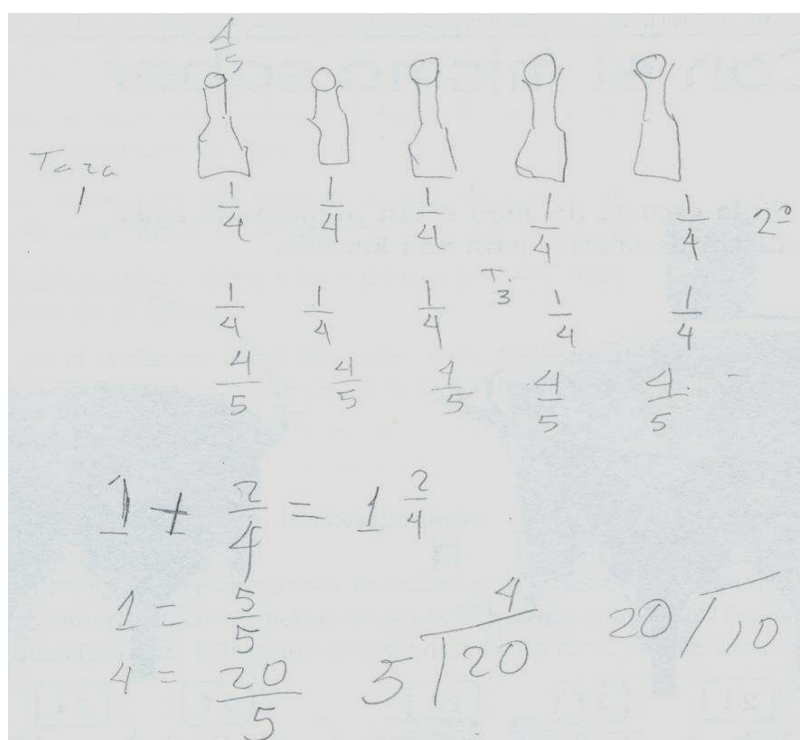 4/5
Taza
1 1/4 1/4 1/4 1/4 1/4 2º
T.
3
1/4 1/4 1/4 1/4 1/4
4/5 4/5 4/5 4/5 4/5
1 + 2/4 = 1 2/4
1 = 5/5
4 = 20/5
4
5/20
20/10